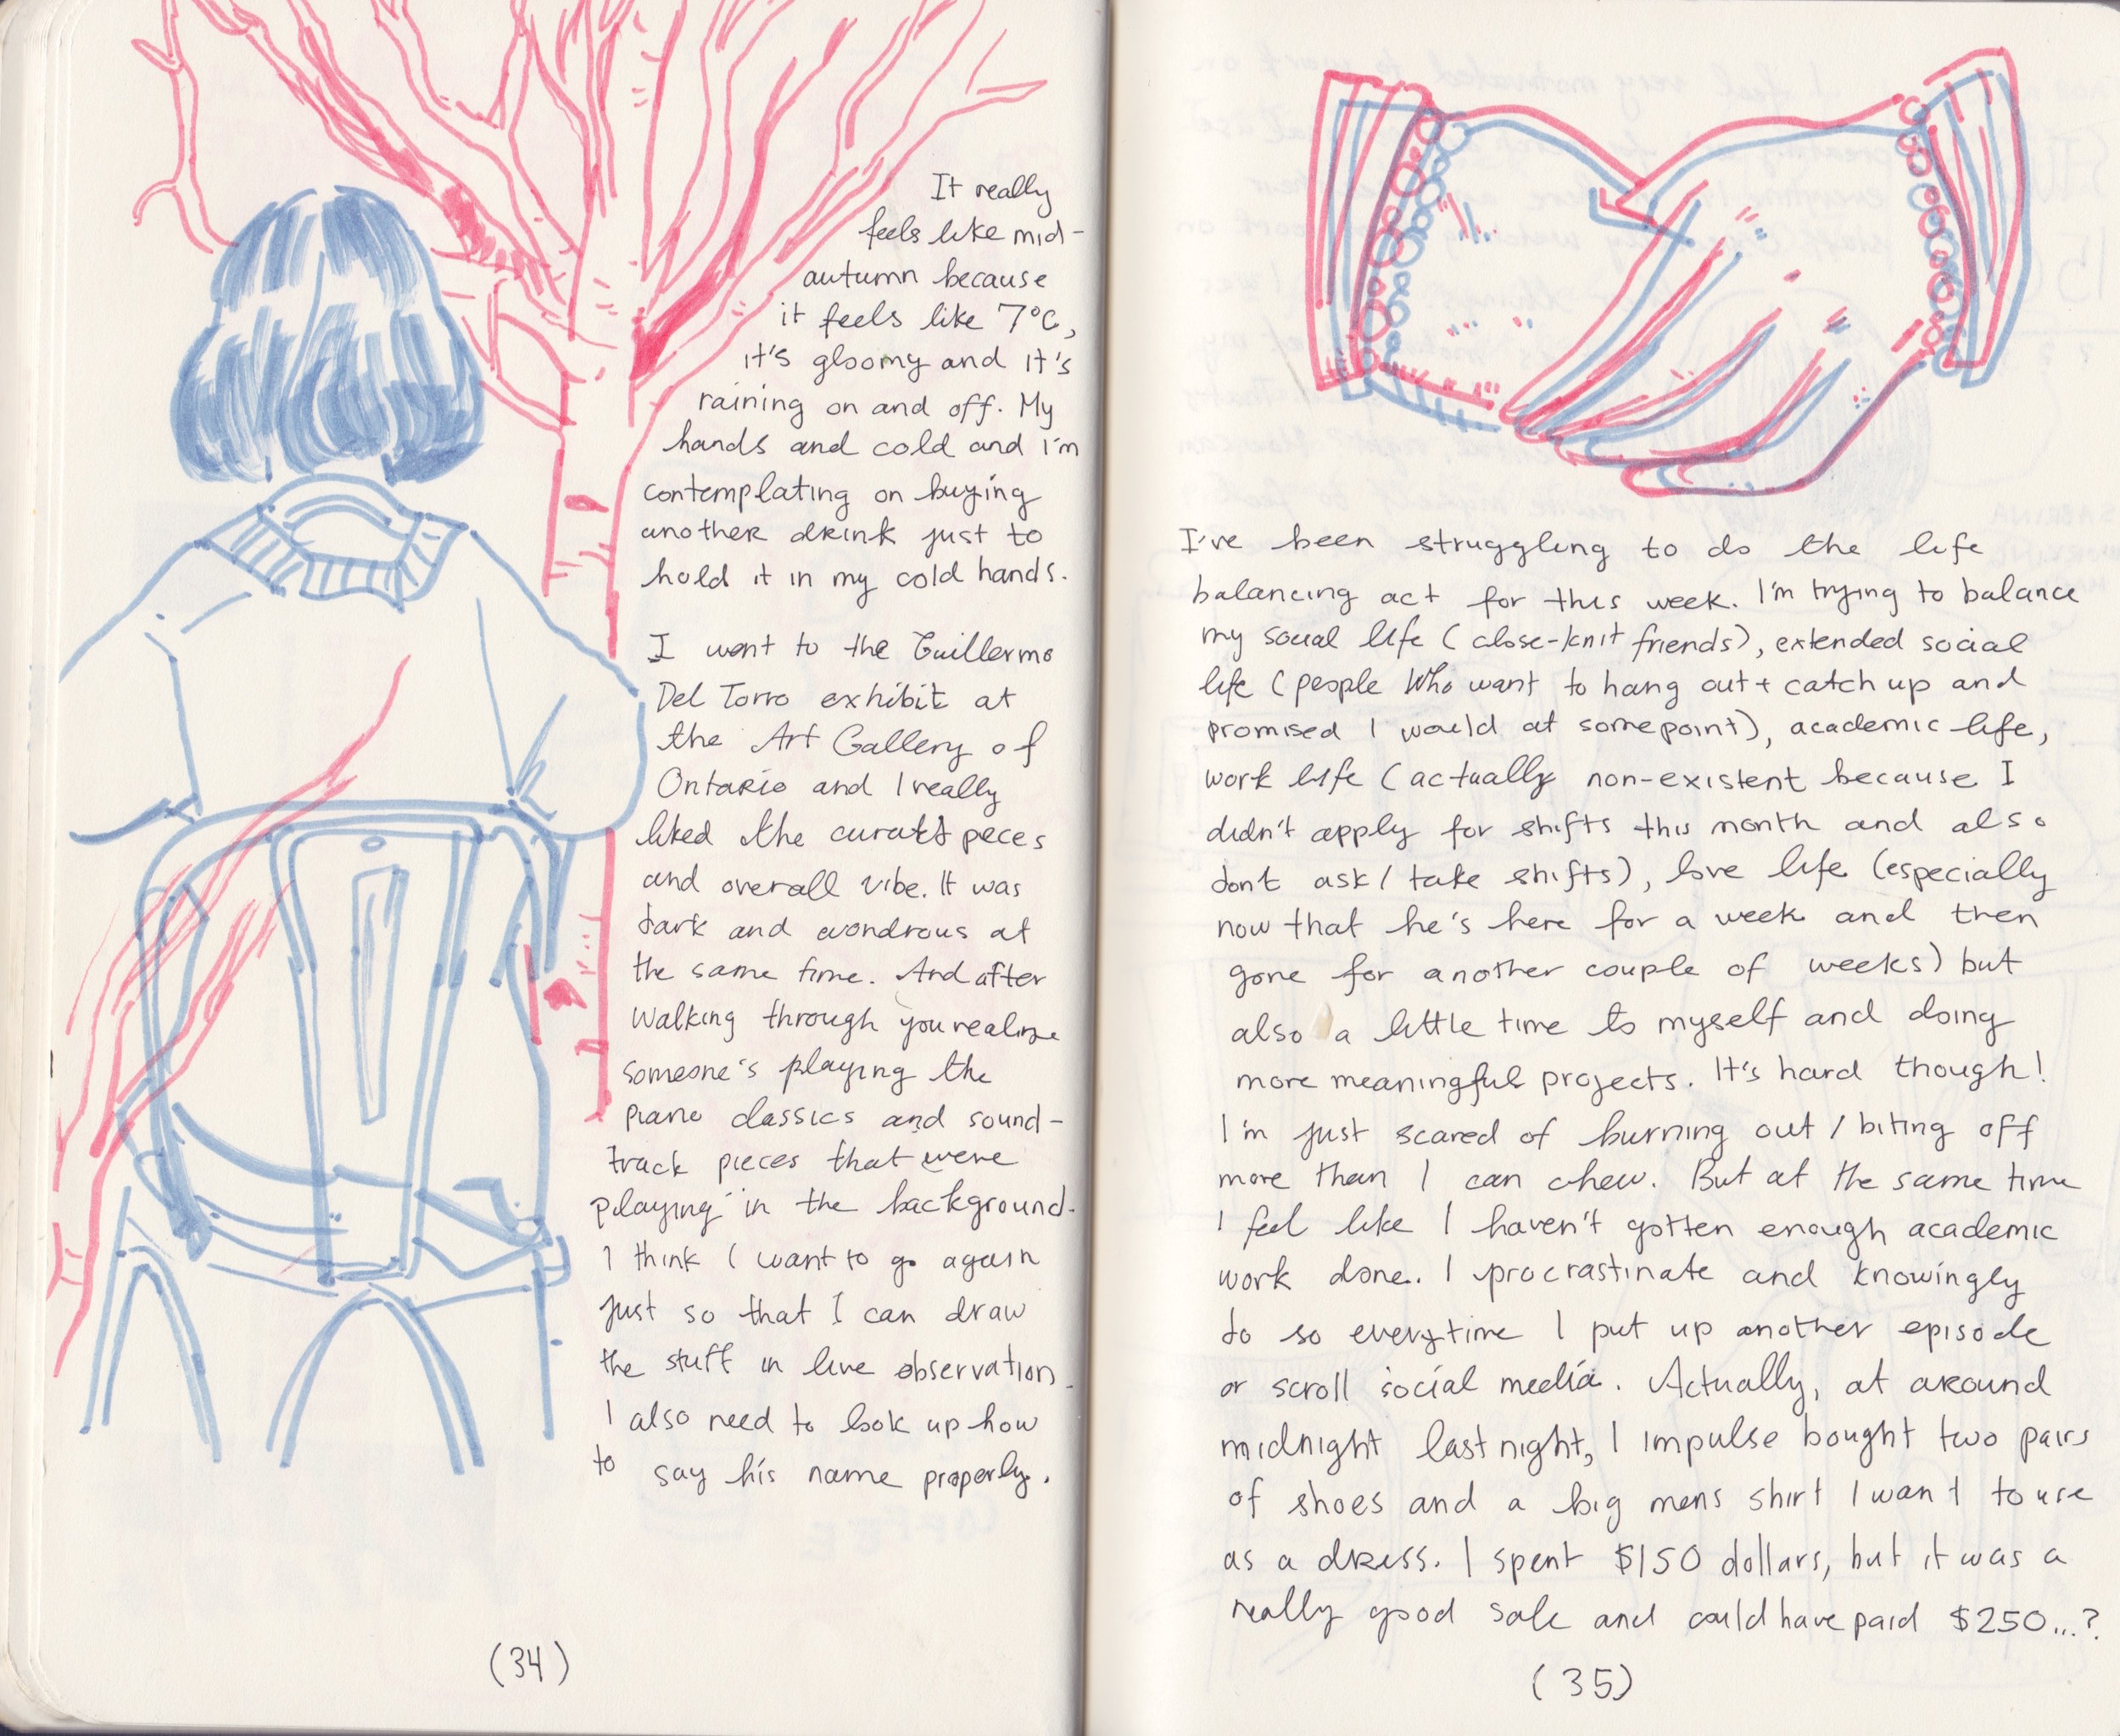 It really
feels like mid-
autumn because
it feels like 7°C,
it's gloomy and it's
raining on and off. My
hands and cold and I'm
contemplating on buying
another drink just to
hold it in my cold hands.
I went to the Guillermo
Del Torro exhibit at
the Art Gallery of
Ontario and I really
liked the peces
and overall vibe. It was
dark and wondrous at
the same time. And after
walking through you realize
someone's playing the
piano classics and sound-
track pieces that were
playing in the background.
I think I want to go again
just so that I can draw
the stuff in live observation.
I also need to look up how
to say his name properly.
(34)
I've been struggling to do the life
balancing act for this week. I'm trying to balance
my social life (close-knit friends), extended social
life (people who want to hang out + catch up and
promised I would at some point), academic life,
work life (actually non-existent because I
didn't apply for shifts this month and also
dont ask / take shifts), love life (especially
now that he's here for a week and then
gone for another couple of weeks) but
also a little time to myself and doing
more meaningful projects. It's hard though!
I'm just scared of burning out / biting off
more than I can chew. But at the same time
I feel like I haven't gotten enough academic
work done. I procrastinate and knowingly
do so everytime I put up another episode
or scroll social media. Actually, at around
midnight last night, I impulse bought two pairs
of shoes and a big mens shirt I want to use
as a dress. I spent $150 dollars, but it was a
really good sale and could have paid $250...?
(35)